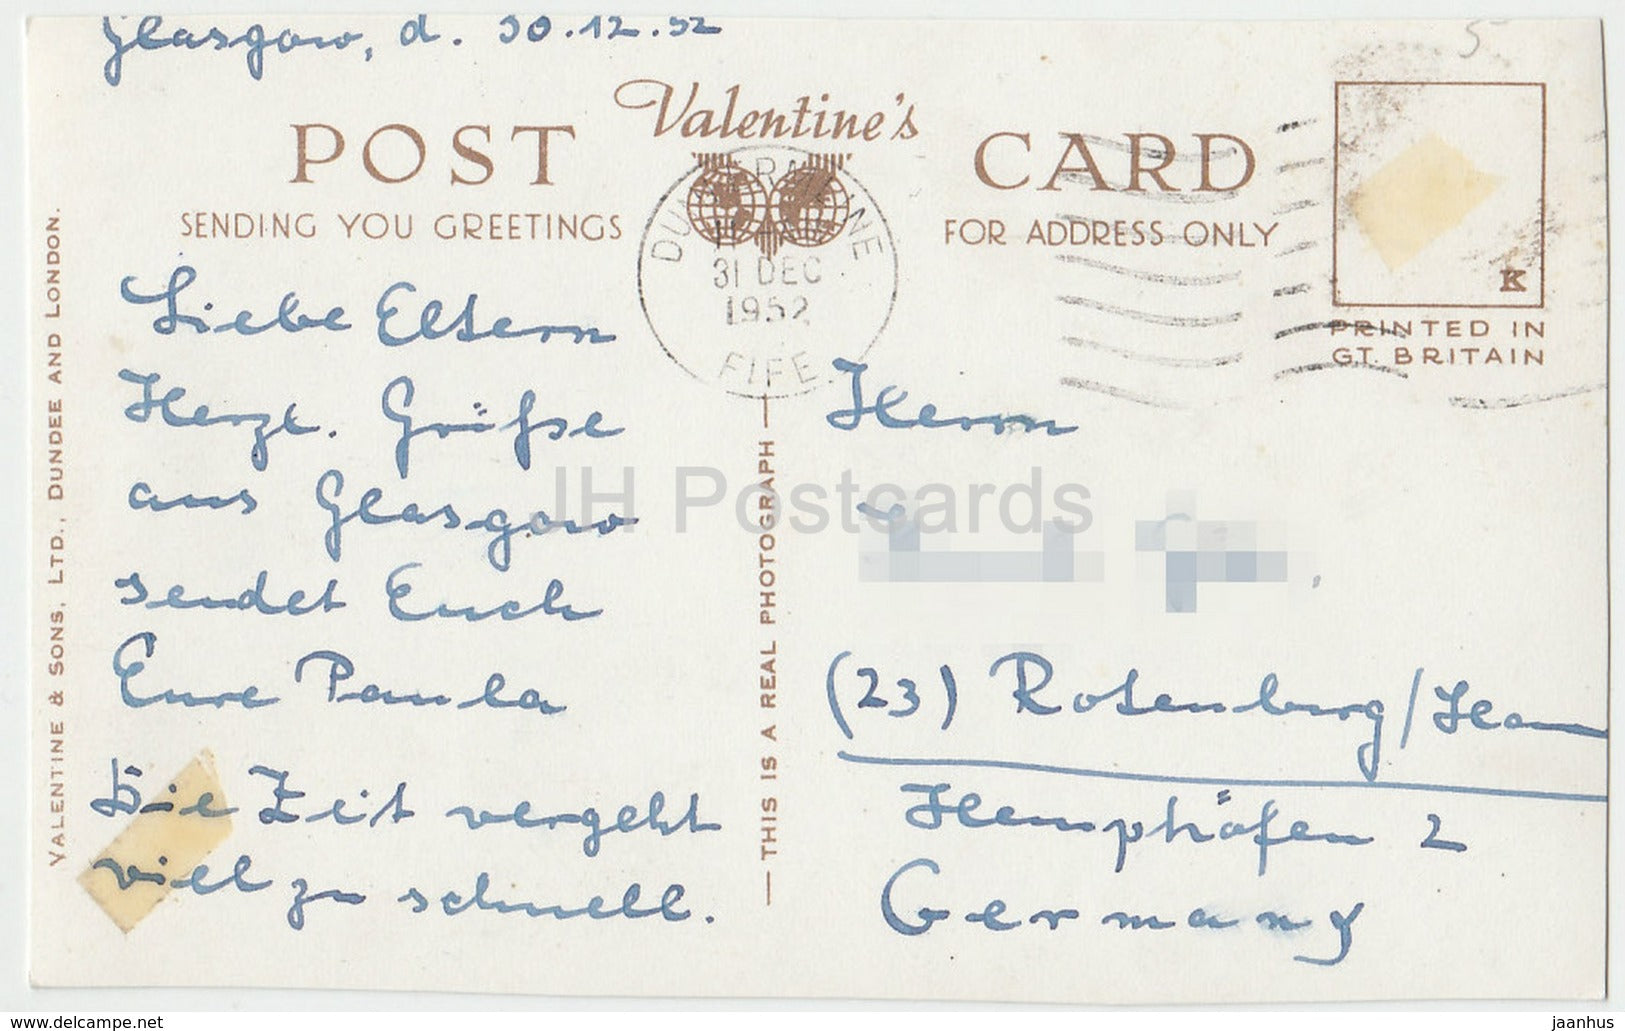 Glasgow, d. 30.12.52
Valentine's
POST CARD
SENDING YOU GREETINGS
FOR ADDRESS ONLY
DUNFERMLINE
31 DEC
1952
FIFE
K
PRINTED IN
GT. BRITAIN
VALENTINE & SONS, LTD., DUNDEE AND LONDON.
Liebe Eltern
Herzl. Grüße
aus Glasgow
sendet Euch
Eure Paula
Die Zeit vergeht
viel zu schnell.
— THIS IS A REAL PHOTOGRAPH —
Herrn
(23) Rotenburg/Han
Hemphöfen 2
Germany
JH Postcards
www.delcampe.net
jaanhus